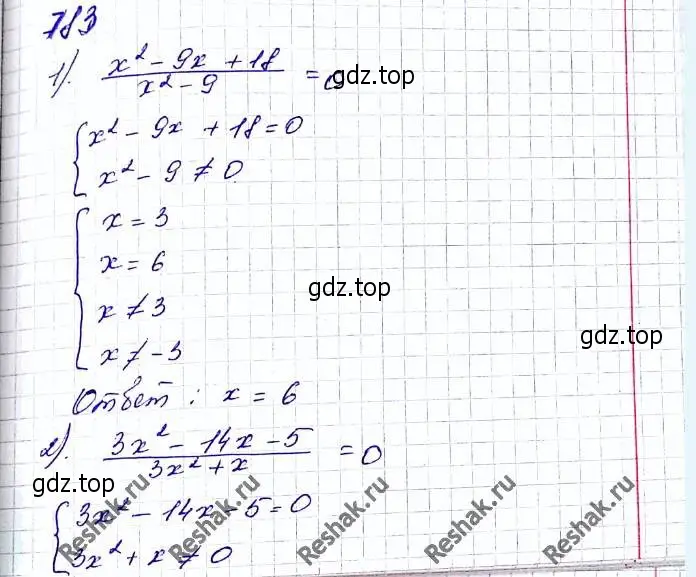 783
1). (x² - 9x + 18)/(x² - 9) = 0
gdz.top
{ x² - 9x + 18 = 0
x² - 9 ≠ 0
{ x = 3
x = 6
gdz.top
x ≠ 3
gdz.top
x ≠ -3
Ответ: x = 6
2). (3x² - 14x - 5)/(3x² + x) = 0
gdz.top
{ 3x² - 14x - 5 = 0
3x² + x ≠ 0
Reshak.ru
Reshak.ru
Reshak.ru
Reshak.ru
Reshak.ru